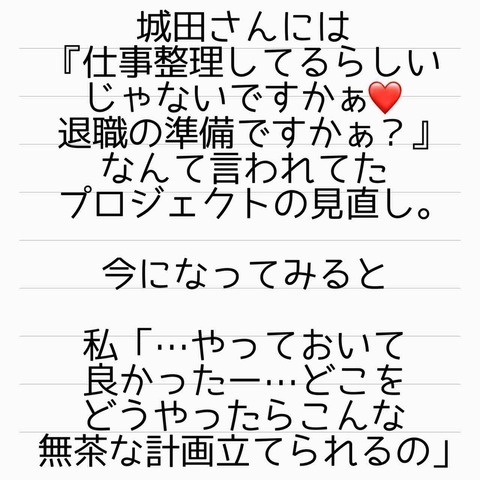 城田さんには
『仕事整理してるらしい
じゃないですかぁ❤️
退職の準備ですかぁ？』
なんて言われてた
プロジェクトの見直し。
今になってみると
私「…やっておいて
良かったー…どこを
どうやったらこんな
無茶な計画立てられるの」